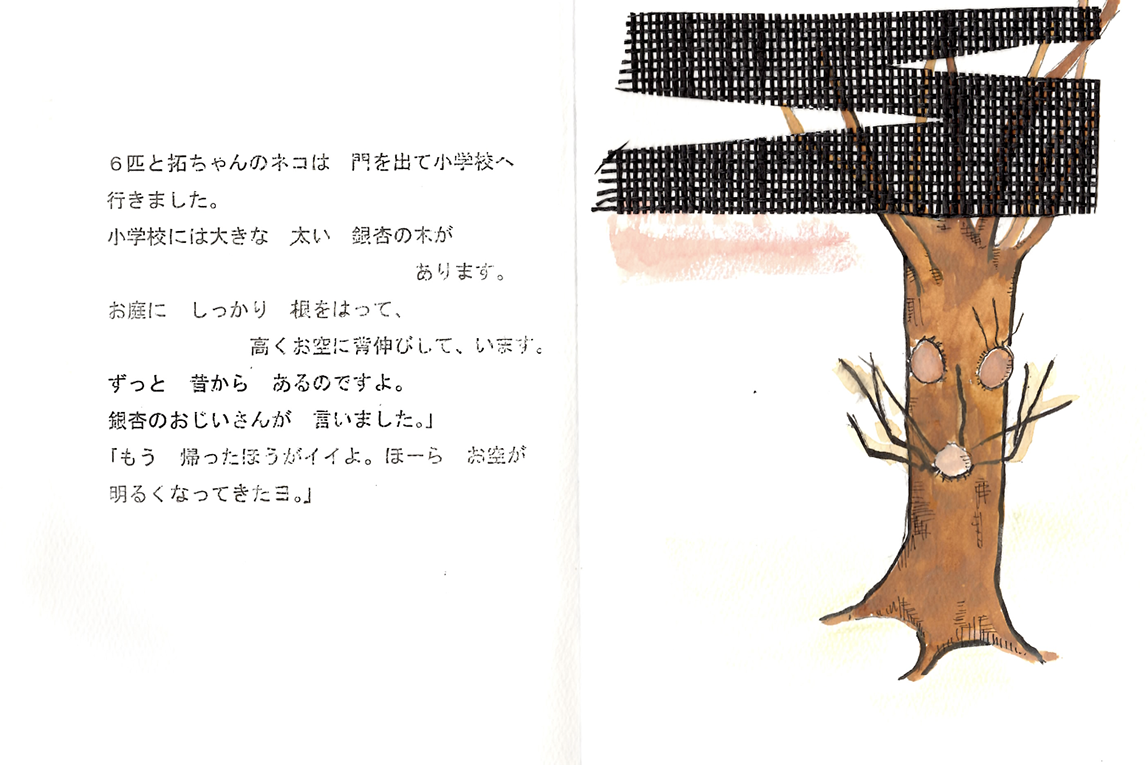 6匹と拓ちゃんのネコは　門を出て小学校へ
行きました。
小学校には大きな　太い　銀杏の木が
あります。
お庭に　しっかり　根をはって、
高くお空に背伸びして、います。
ずっと　昔から　あるのですよ。
銀杏のおじいさんが　言いました。」
「もう　帰ったほうがイイよ。ほーら　お空が
明るくなってきたヨ。」